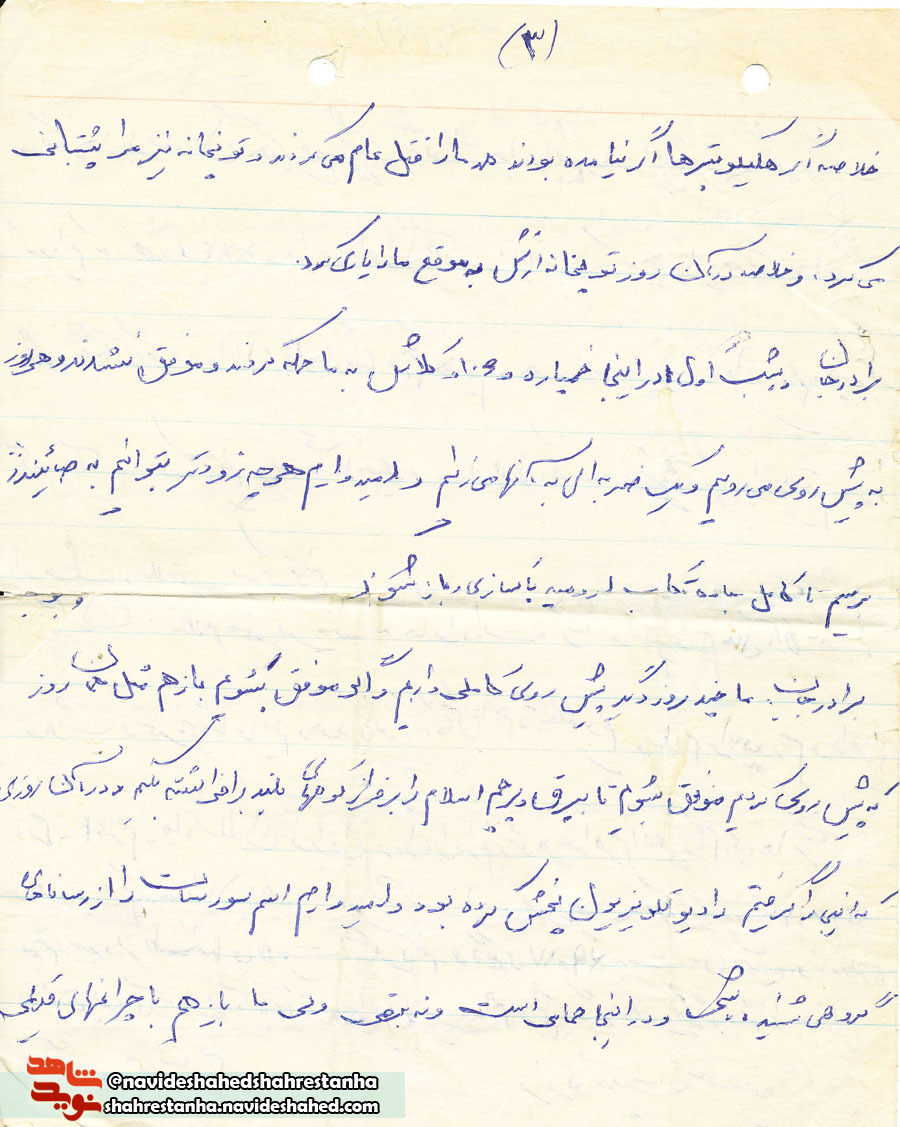 (۳)
خلاصه اگر هلیکوپترها اگر نیامده بودند همه ما را قتل عام می کردند و توپخانه نیز ما را پشتبانی
می کرد، و خلاصه در آن روز توپخانه ارتش به موقع ما را یاری کرد.
برادرجان شب اول در اینجا خمپاره و کلاش به ما حمله کردند و موفق نشدند و هر روز
به پیش روی می رویم و یک ضربه ای به آنها می زنیم و امیدواریم هرچه زودتر بتوانیم به صائیندژ
برسیم تا کامل جاده تکاب ارومیه پاکسازی و باز شود
برادرجان ما چند روز دیگر پیش روی کاملی داریم و اگر موفق بشویم باز هم مثل همان روز
که پیش روی کردیم موفق بشویم تا بیرق و پرچم اسلام را بر فراز کوههای بلند برافراشته بکنیم و در آن روزی
که اینجا را گرفتیم رادیو تلویزیون پخش کرده بود و امیدوارم اسم سورسات را از رسانه های
گروهی شنیده باشی و در اینجا حمامی است و نه برقی ولی ما باز هم با چراغهای قدیمی
نوید شاهد
@navideshahedshahrestanha
shahrestanha.navideshahed.com